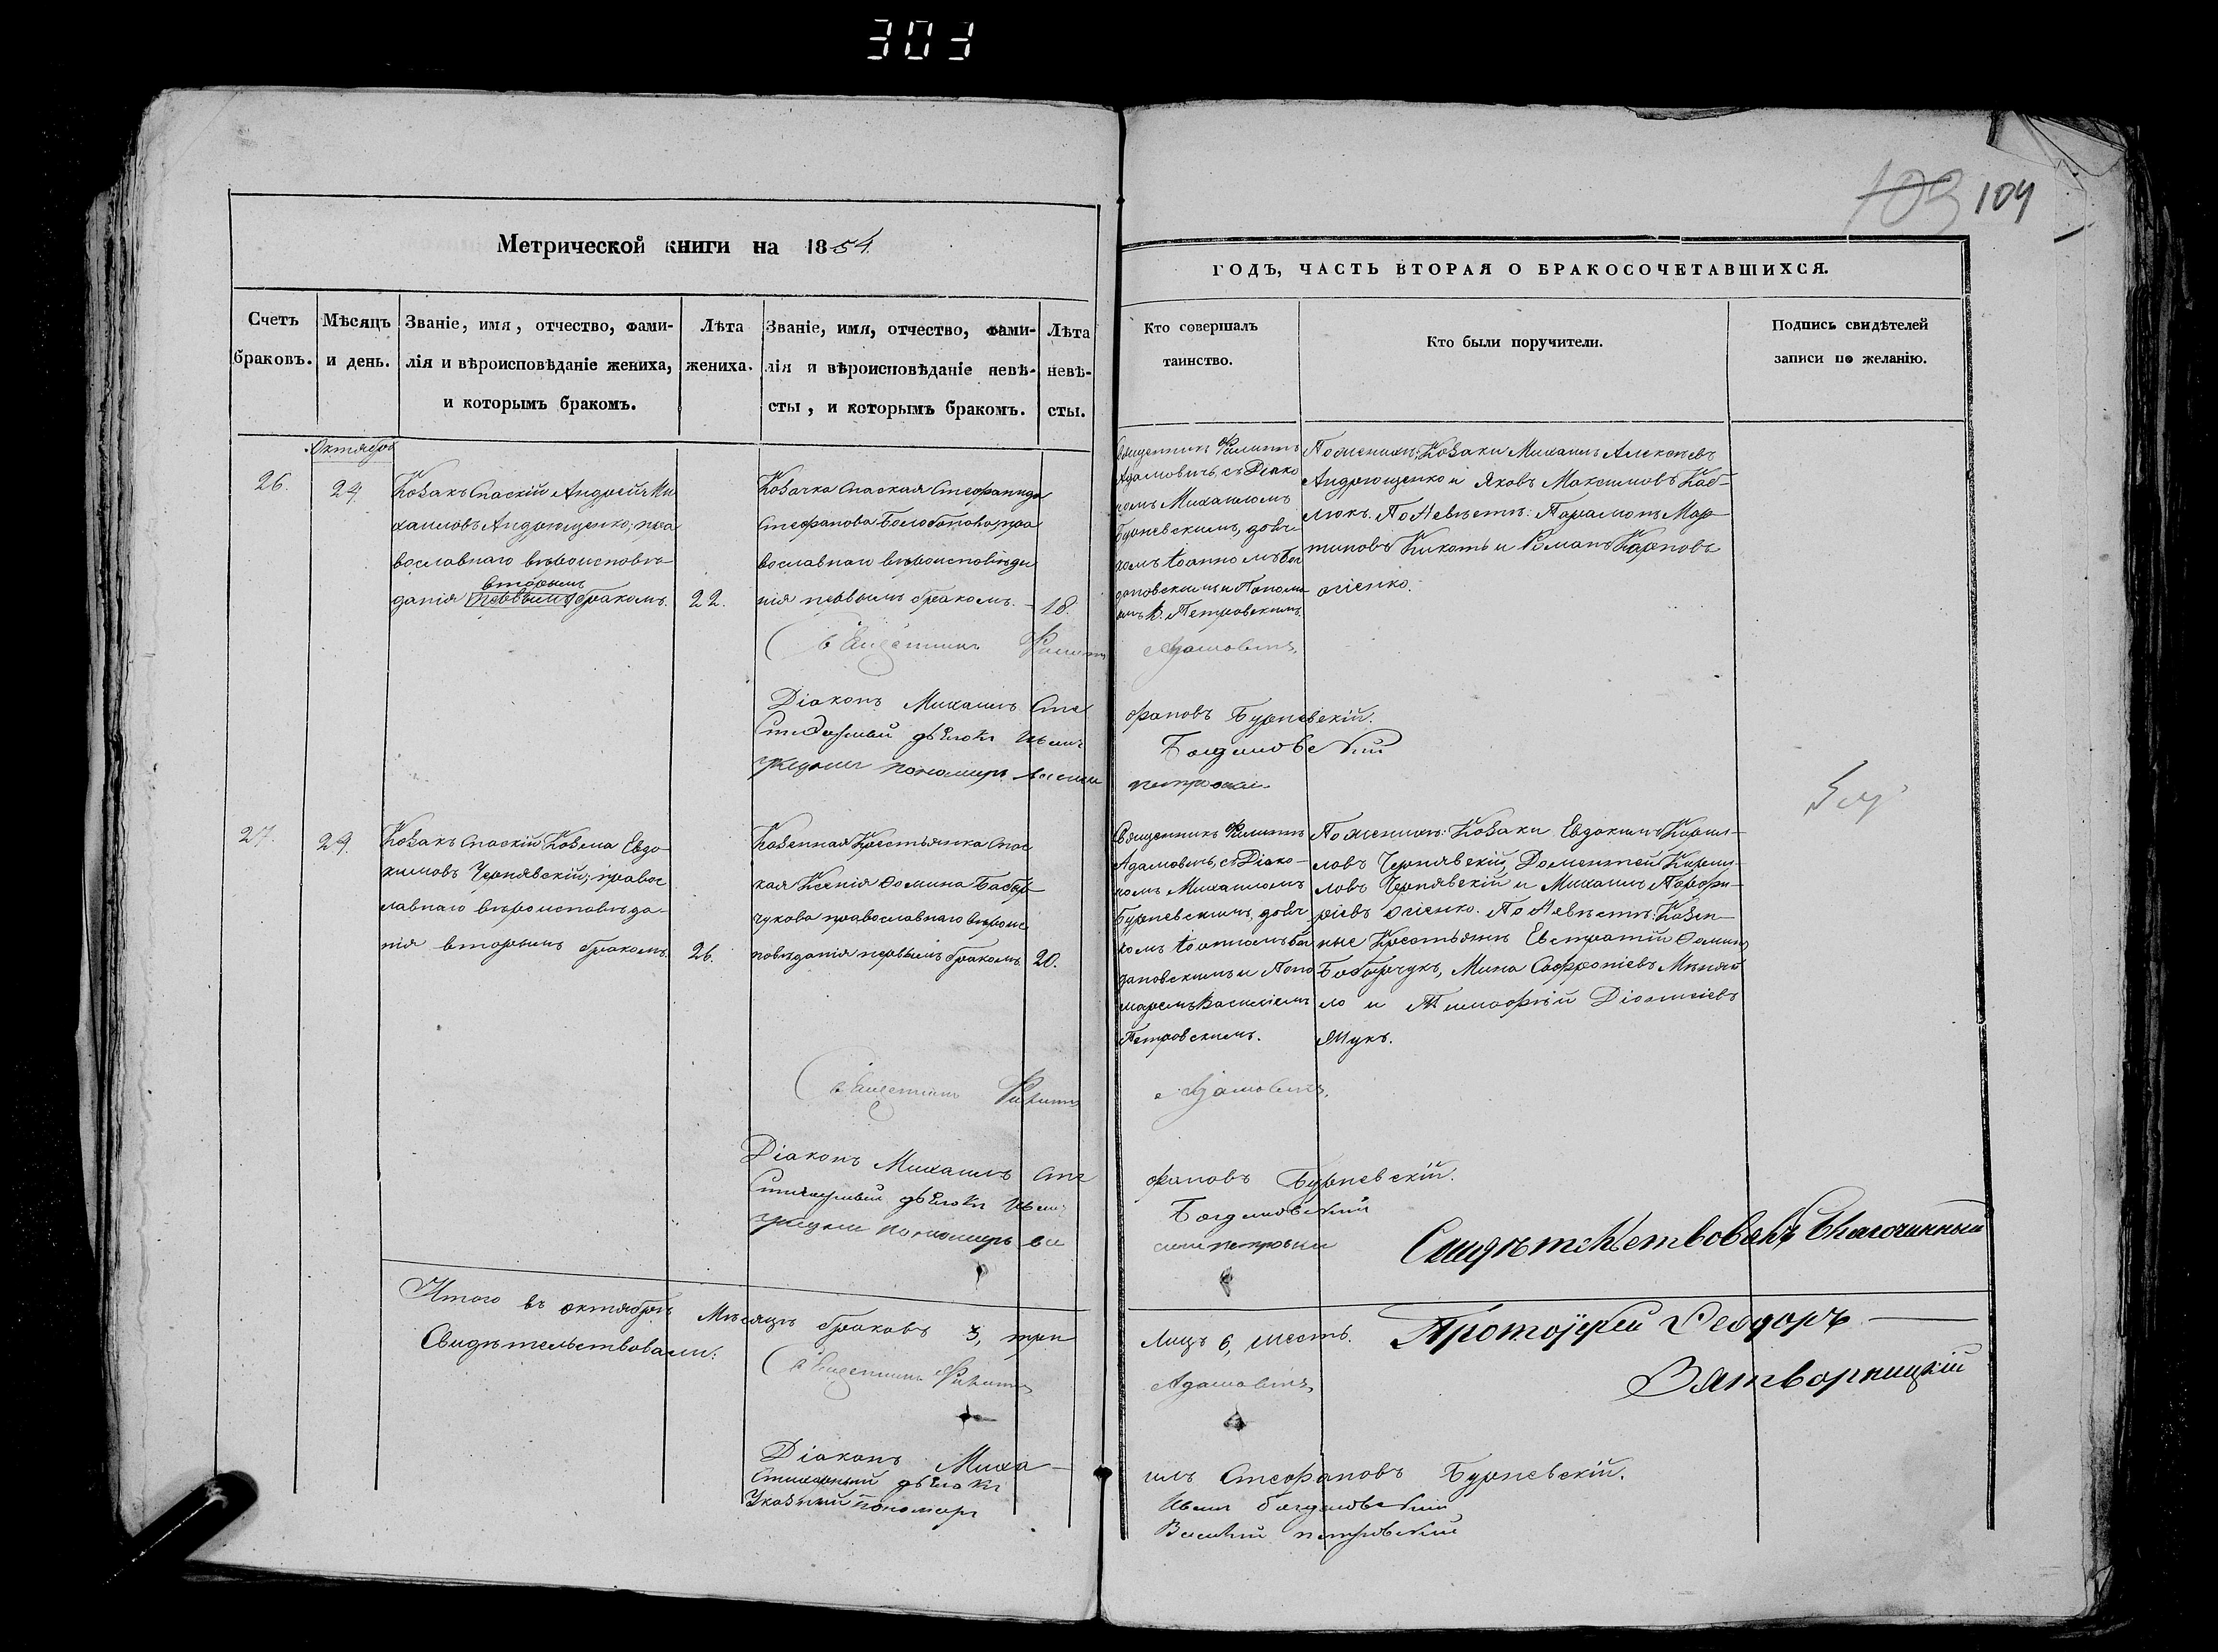 303
103 104
Метрической книги на 1854
ГОДЪ, ЧАСТЬ ВТОРАЯ О БРАКОСОЧЕТАВШИХСЯ.
Счетъ браковъ.
Мѣсяцъ и день.
Званіе, имя, отчество, фами-
лія и вѣроисповѣданіе жениха,
и которымъ бракомъ.
Лѣта
жениха.
Званіе, имя, отчество, фами-
лія и вѣроисповѣданіе невѣ-
сты, и которымъ бракомъ.
Лѣта
невѣ-
сты.
Кто совершалъ
таинство.
Кто были поручители.
Подпись свидѣтелей
записи по желанію.
Октябрь
26.
24
Козакъ Спаскій Андрей Ми
хаиловъ Андрющенко, пра
вославнаго вѣроисповѣ-
вторымъ
данія первымъ бракомъ.
22.
Козачка Спаская Стефанида
Стефанова Белоботова пра
вославнаго вѣроисповѣда
нія первымъ бракомъ.
18.
Священникъ Филиппъ
Адамовичъ, съ Діако
номъ Михаиломъ
Бурневскимъ, дьяч
комъ Іоанномъ Бог
дановскимъ и Понома
В. Петровскимъ.
По женихѣ: Козаки Михаилъ Алексѣевъ
Андрющенко и Яковъ Максимовъ Каб-
люкъ. По Невѣстѣ: Парамонъ Мар
тиновъ Кикоть и Романъ Карповъ
Огіенко.
Священникъ Филиппъ Адамовичъ
Діаконъ Михаилъ Сте фановъ Бурневскій.
Стихарный дьячокъ Иванъ Богдановский
пономарь Васили петровски
27.
29.
Козакъ Спаскій Козма Евдо-
кимовъ Чернявскій, правос
лавнаго вѣроисповѣда-
нія вторымъ бракомъ.
26.
Казенная Крестьянка Спас
кая Ксенія Фомина Бабыр
чукова православнаго вѣроис
повѣданія первымъ бракомъ.
20.
Священникъ Филиппъ
Адамовичъ, съ Діако-
номъ Михаиломъ
Бурневскимъ, дьяч
комъ Іоанномъ Бог
дановскимъ и Поно
маремъ Василіемъ
Петровскимъ.
По женихѣ: Козаки Евдокимъ Кирил-
ловъ Чернявскій, Дометей Кирил-
ловъ Чернявскій и Михаилъ Порфи-
ріевъ Огіенко. По Невѣстѣ: Казен-
ные Крестьяне Евстратій Фоминъ
Бабырчукъ, Мина Софроніевъ
ло и Тимофій Діонисіевъ
Священникъ Филиппъ Адамовичъ
Діаконъ Михаилъ Сте фановъ Бурневскій.
Стихарный дьячокъ Иванъ Богдановский
пономарь Ва сили петровски
Свидѣтельствовалъ Благочинный
Протоіерей Феодоръ
Вятворницкій
Итого въ октябрѣ Мѣсяцѣ браковъ 3, три Лицъ 6, шесть.
Свидѣтельствовали:
Священникъ Филиппъ Адамовичъ
Діаконъ Миха- илъ Стефановъ Бурневскій.
Стихарный дьячокъ Иванъ Богдановский
Указный пономарь Василий петровский